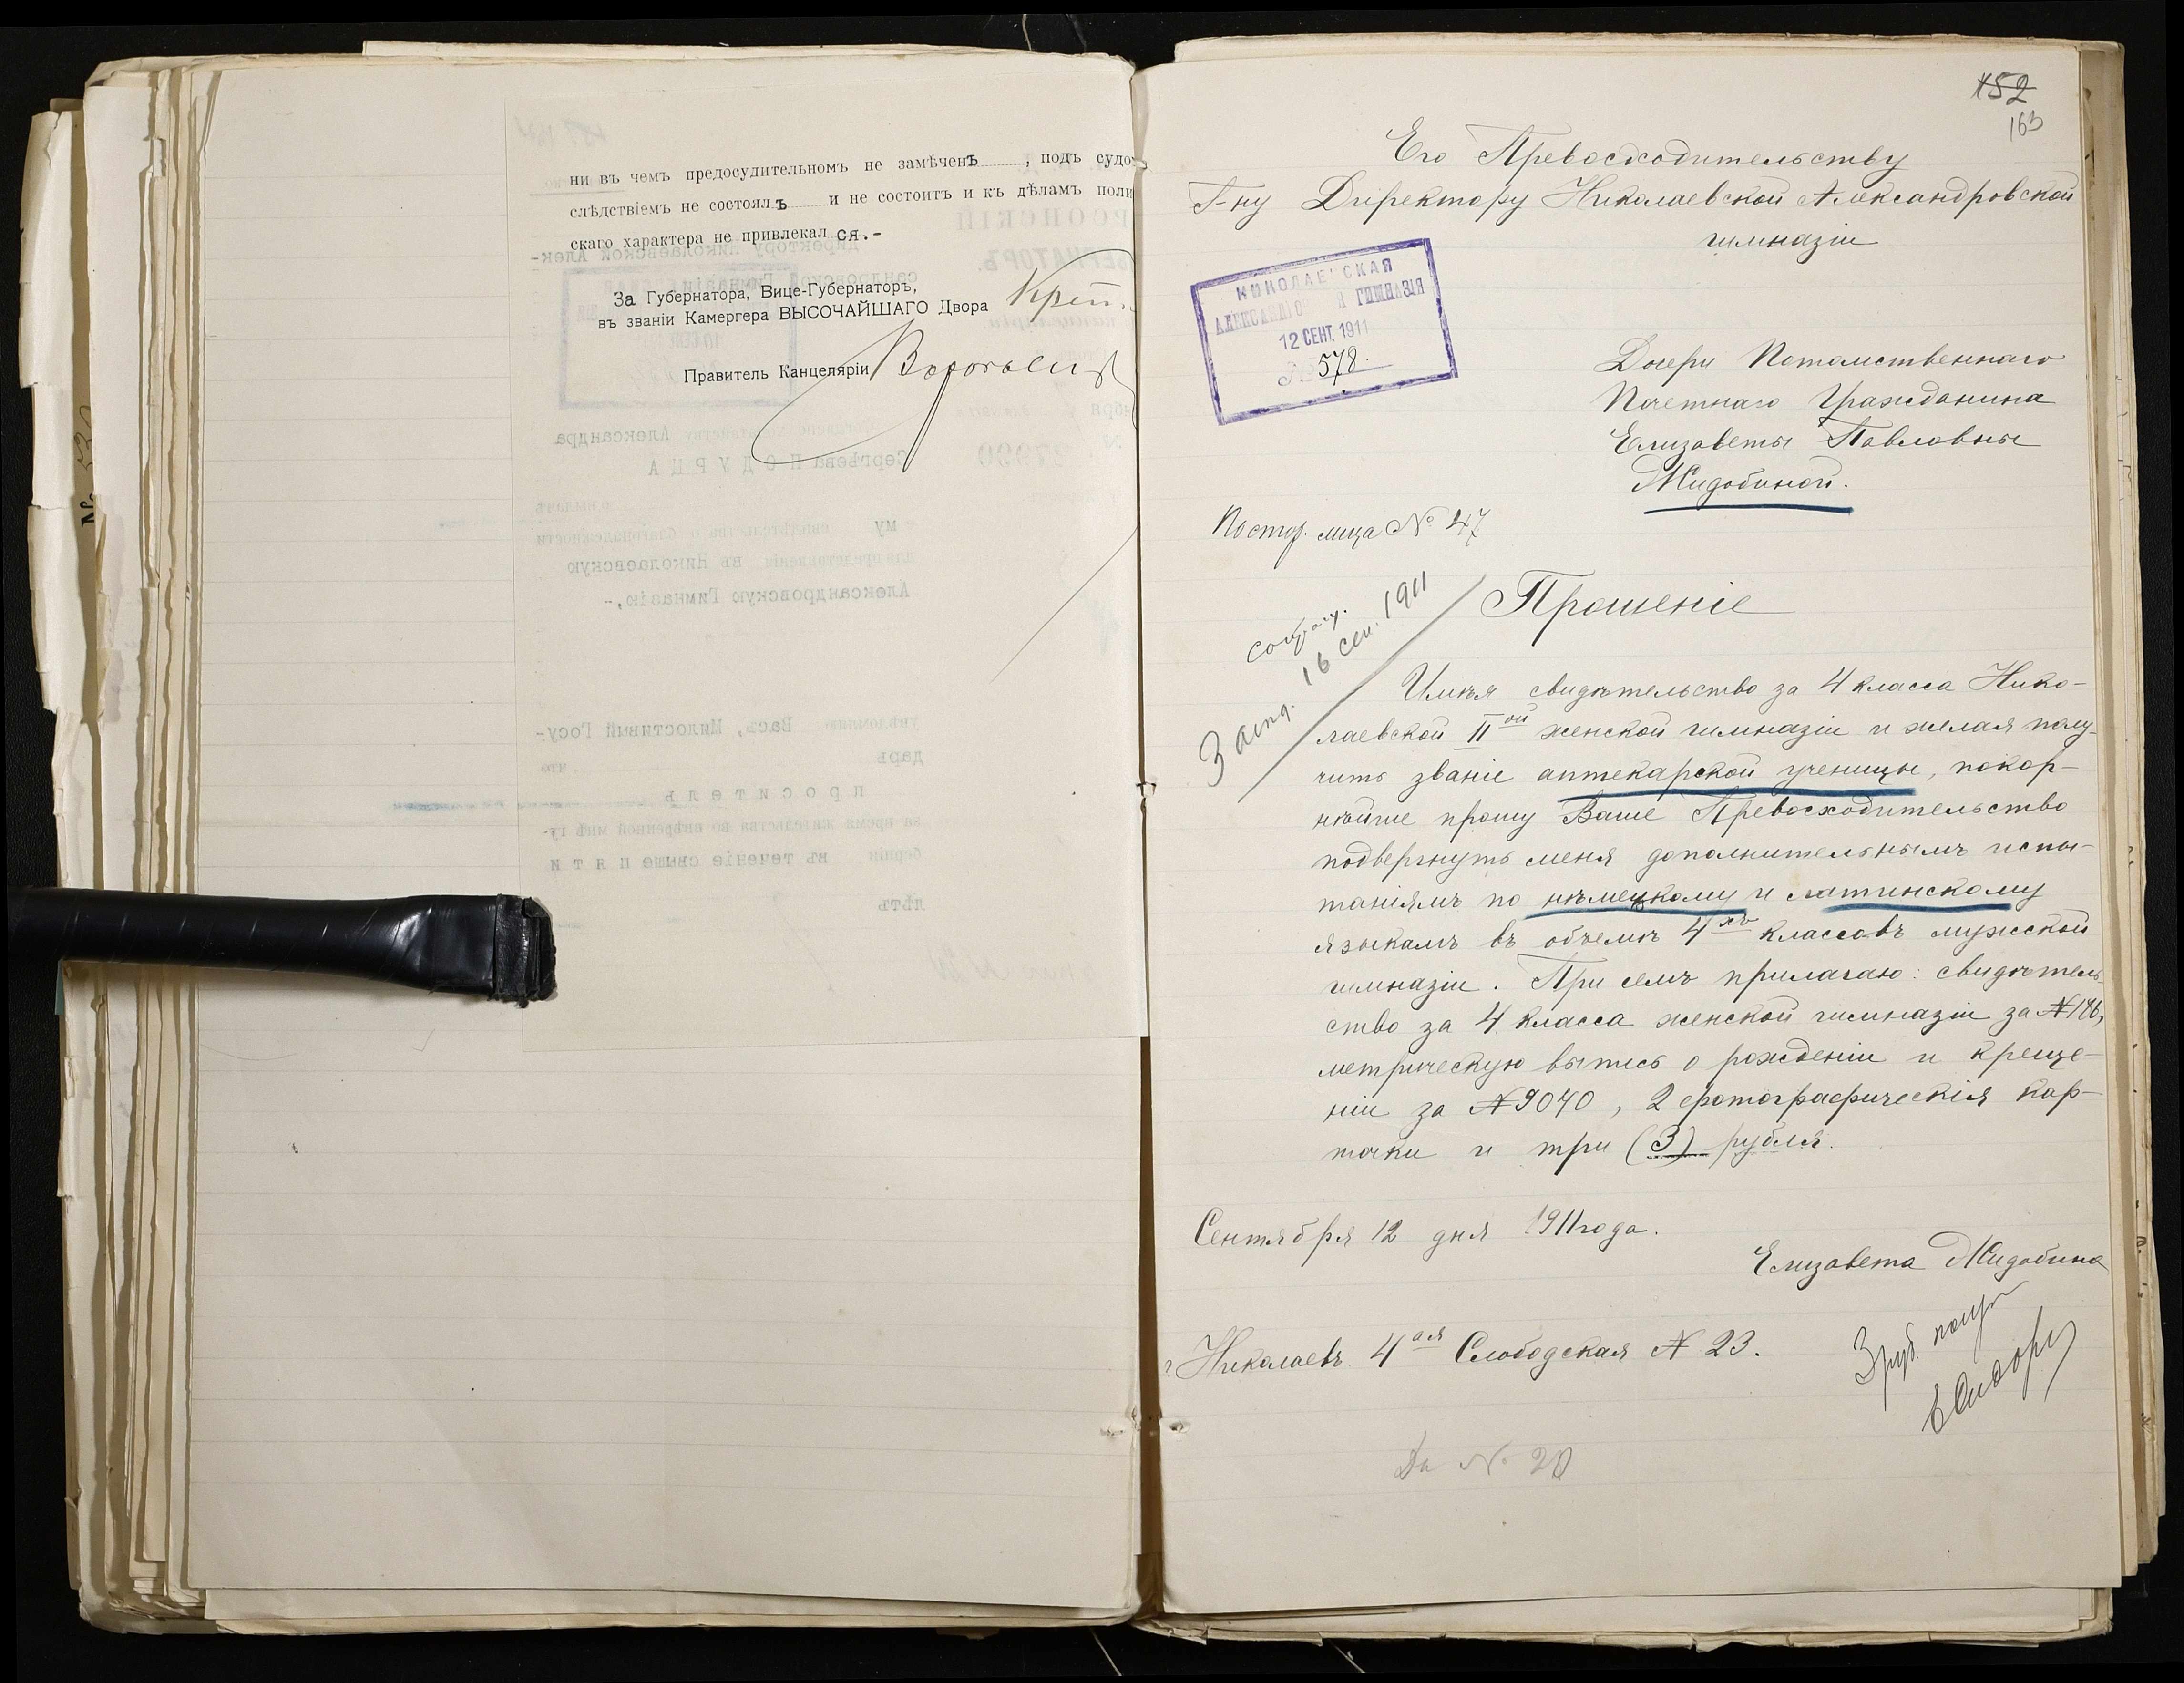 ни въ чемъ предосудительномъ не замѣченъ, подъ судо
слѣдствіемъ не состоялъ и не состоитъ и къ дѣламъ поли
скаго характера не привлекал ся.-
За Губернатора, Вице-Губернаторъ,
въ званіи Камергера ВЫСОЧАЙШАГО Двора
Правитель Канцеляріи
152
163
Его Превосходительству
Г-ну Директору Николаевской Александровской
гимназіи
НИКОЛАЕВСКАЯ
АЛЕКСАНДРО Я ГИМНАЗІЯ
12 СЕНТ. 1911
578.
Дочери Потомственнаго
Почетнаго Гражданина
Елизаветы Павловны
Жидобиной.
Постор. лица № 47
16 сен. 1911
Прошеніе
Имѣя свидѣтельство за 4 класса Нико-
лаевской II ой женской гимназіи и желая полу-
чить званіе аптекарской ученицы, покор-
нѣйше прошу Ваше Превосходительство
подвергнуть меня дополнительнымъ испы-
таніямъ по нѣмецкому и латинскому
языкамъ въ объемѣ 4 хъ классовъ мужской
гимназіи. При семъ прилагаю: свидѣтель-
ство за 4 класса женской гимназіи за №186,
метрическую выпись о рожденіи и креще-
ніи за №9040, 2 фотографическія кар-
точки и три (3) рубля.
Сентября 12 дня 1911 года.
Елизавета Жидобина
г. Николаевъ 4 ая Слободская № 23.
3 руб.
№ 20